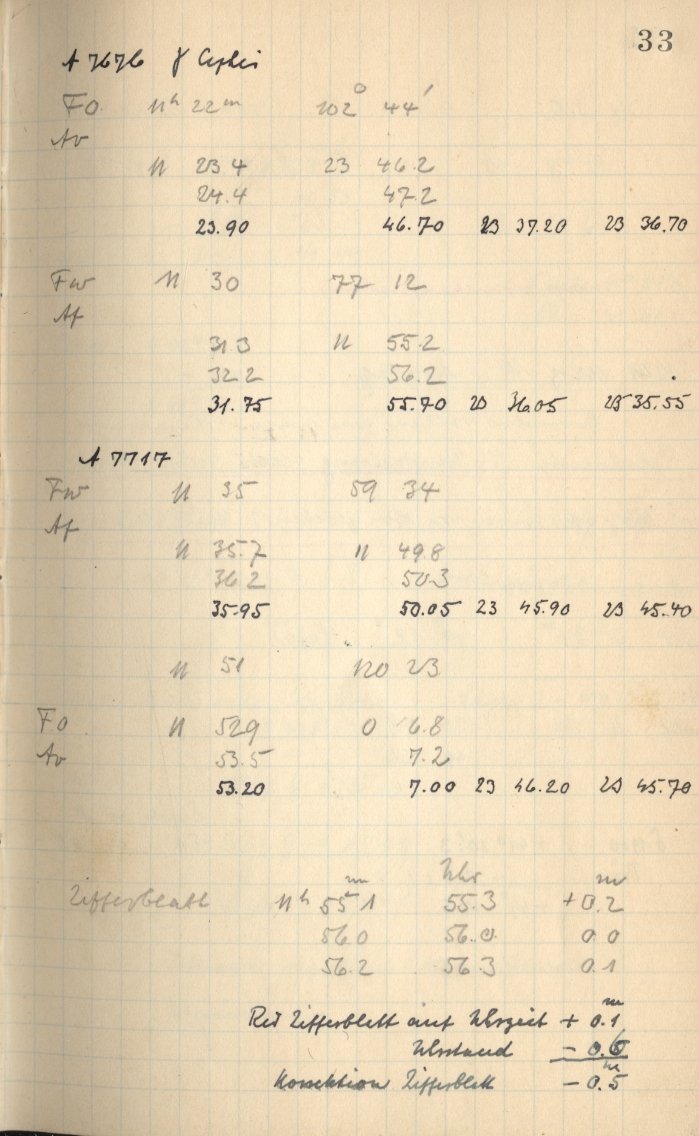 33
A 7676 γ Cephei
FO 11h 22m 102° 44'
Av
11 23 4 23 46.2
24.4 47.2
23.90 46.70 23 37.20 23 36.70
Fw 11 30 77 12
Af
31 3 11 55.2
32 2 56.2
31.75 55.70 23 36.05 23 35.55
A 7717
Fw 11 35 59 34
Af
11 35.7 11 49.8
36.2 50.3
35.95 50.05 23 45.90 23 45.40
11 51 120 23
FO 11 52.9 0 6.8
Av 53.5 7.2
53.20 7.00 23 46.20 23 45.70
m Uhr m
Zifferblatt 11h 55 1 55.3 +0.2
56.0 56.0 0.0
56.2 56.3 0.1
Red Zifferblatt auf Uhrzeit + 0.1m
Uhrstand - 0.6
Korrektion Zifferblatt - 0.5m